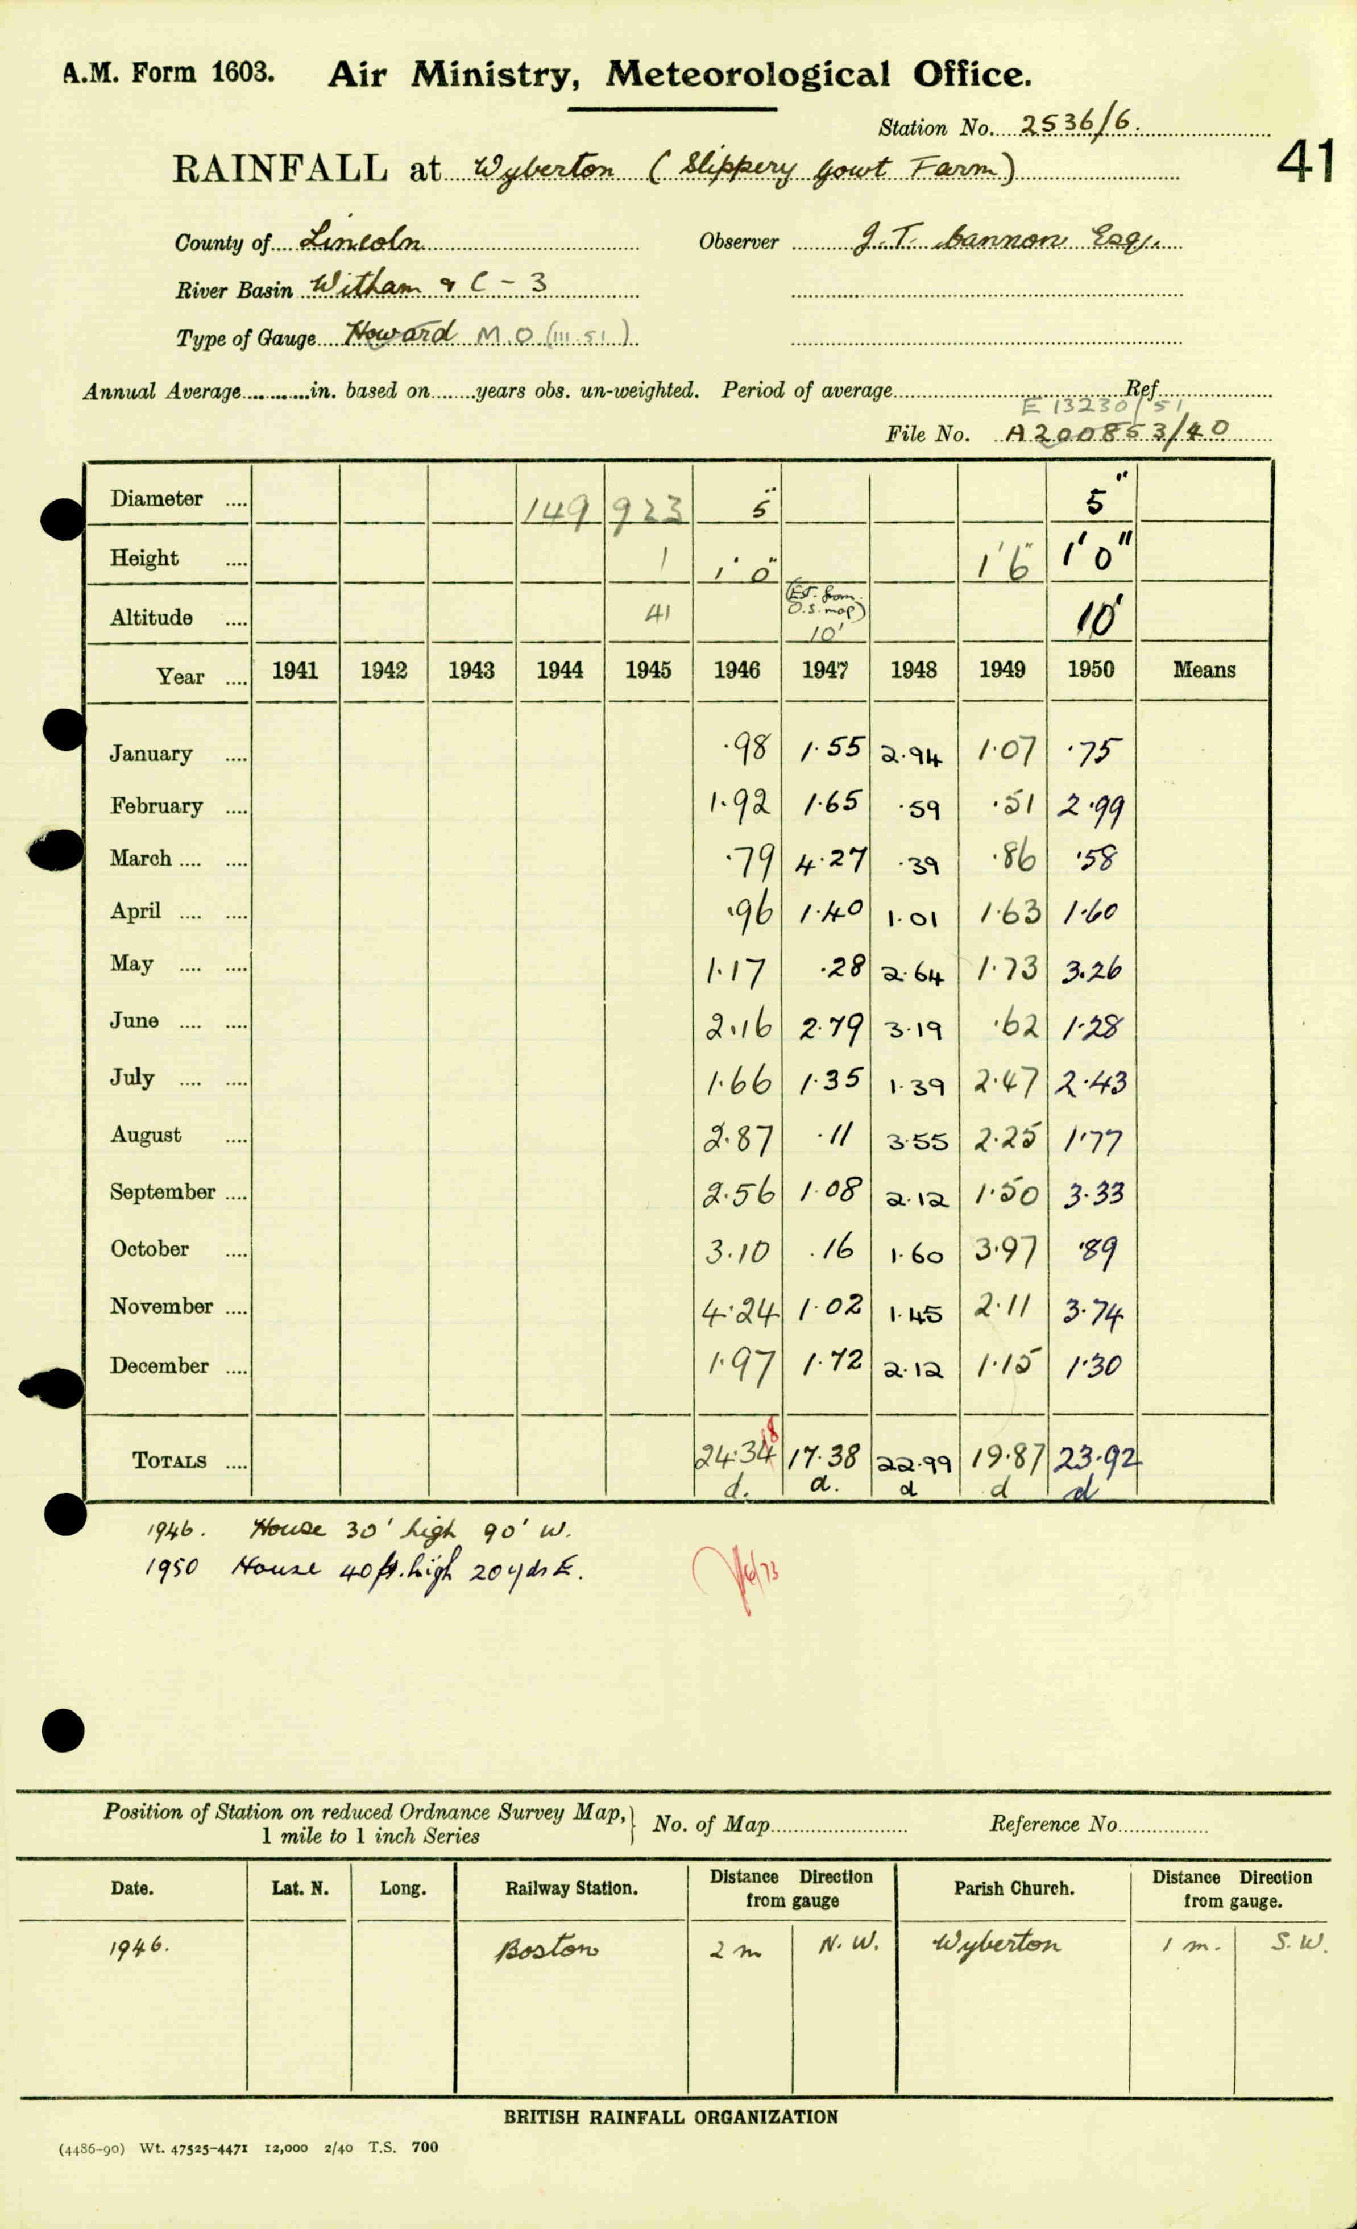 A.M. Form 1603. Air Ministry, Meteorological Office.
Station No. 2536/6.
41
RAINFALL at Wyberton (Slippery Gowt Farm)
County of Lincoln Observer J.T. Cannon Esq.
River Basin Witham & C - 3
Type of Gauge Howard M.O (III.51)
Annual Average ........ in. based on ........ years obs. un-weighted. Period of average ........ Ref ........
E 13230/51
File No. A200853/40
Diameter .... 149 923 5" 5"
Height .... 1 1' 0" 1' 6" 1' 0"
Altitude .... 41 (Est. from O.S. map) 10' 10'
Year .... 1941 1942 1943 1944 1945 1946 1947 1948 1949 1950 Means
January .... .98 1.55 2.94 1.07 .75
February .... 1.92 1.65 .59 .51 2.99
March .... .... .79 4.27 .39 .86 .58
April .... .... .96 1.40 1.01 1.63 1.60
May .... .... 1.17 .28 2.64 1.73 3.26
June .... .... 2.16 2.79 3.19 .62 1.28
July .... .... 1.66 1.35 1.39 2.47 2.43
August .... 2.87 .11 3.55 2.25 1.77
September .... 2.56 1.08 2.12 1.50 3.33
October .... 3.10 .16 1.60 3.97 .89
November .... 4.24 1.02 1.45 2.11 3.74
December .... 1.97 1.72 2.12 1.15 1.30
TOTALS .... 24.34 17.38 22.99 19.87 23.92
d. d. d d d
1946. House 30' high 90' W.
1950 House 40 ft. high 20 yds E.
Position of Station on reduced Ordnance Survey Map, } No. of Map ........ Reference No. ........
1 mile to 1 inch Series
Date. Lat. N. Long. Railway Station. Distance Direction from gauge Parish Church. Distance Direction from gauge.
1946. Boston 2 m N.W. Wyberton 1 m. S.W.
BRITISH RAINFALL ORGANIZATION
(4486-90) Wt. 47525-4471 12,000 2/40 T.S. 700